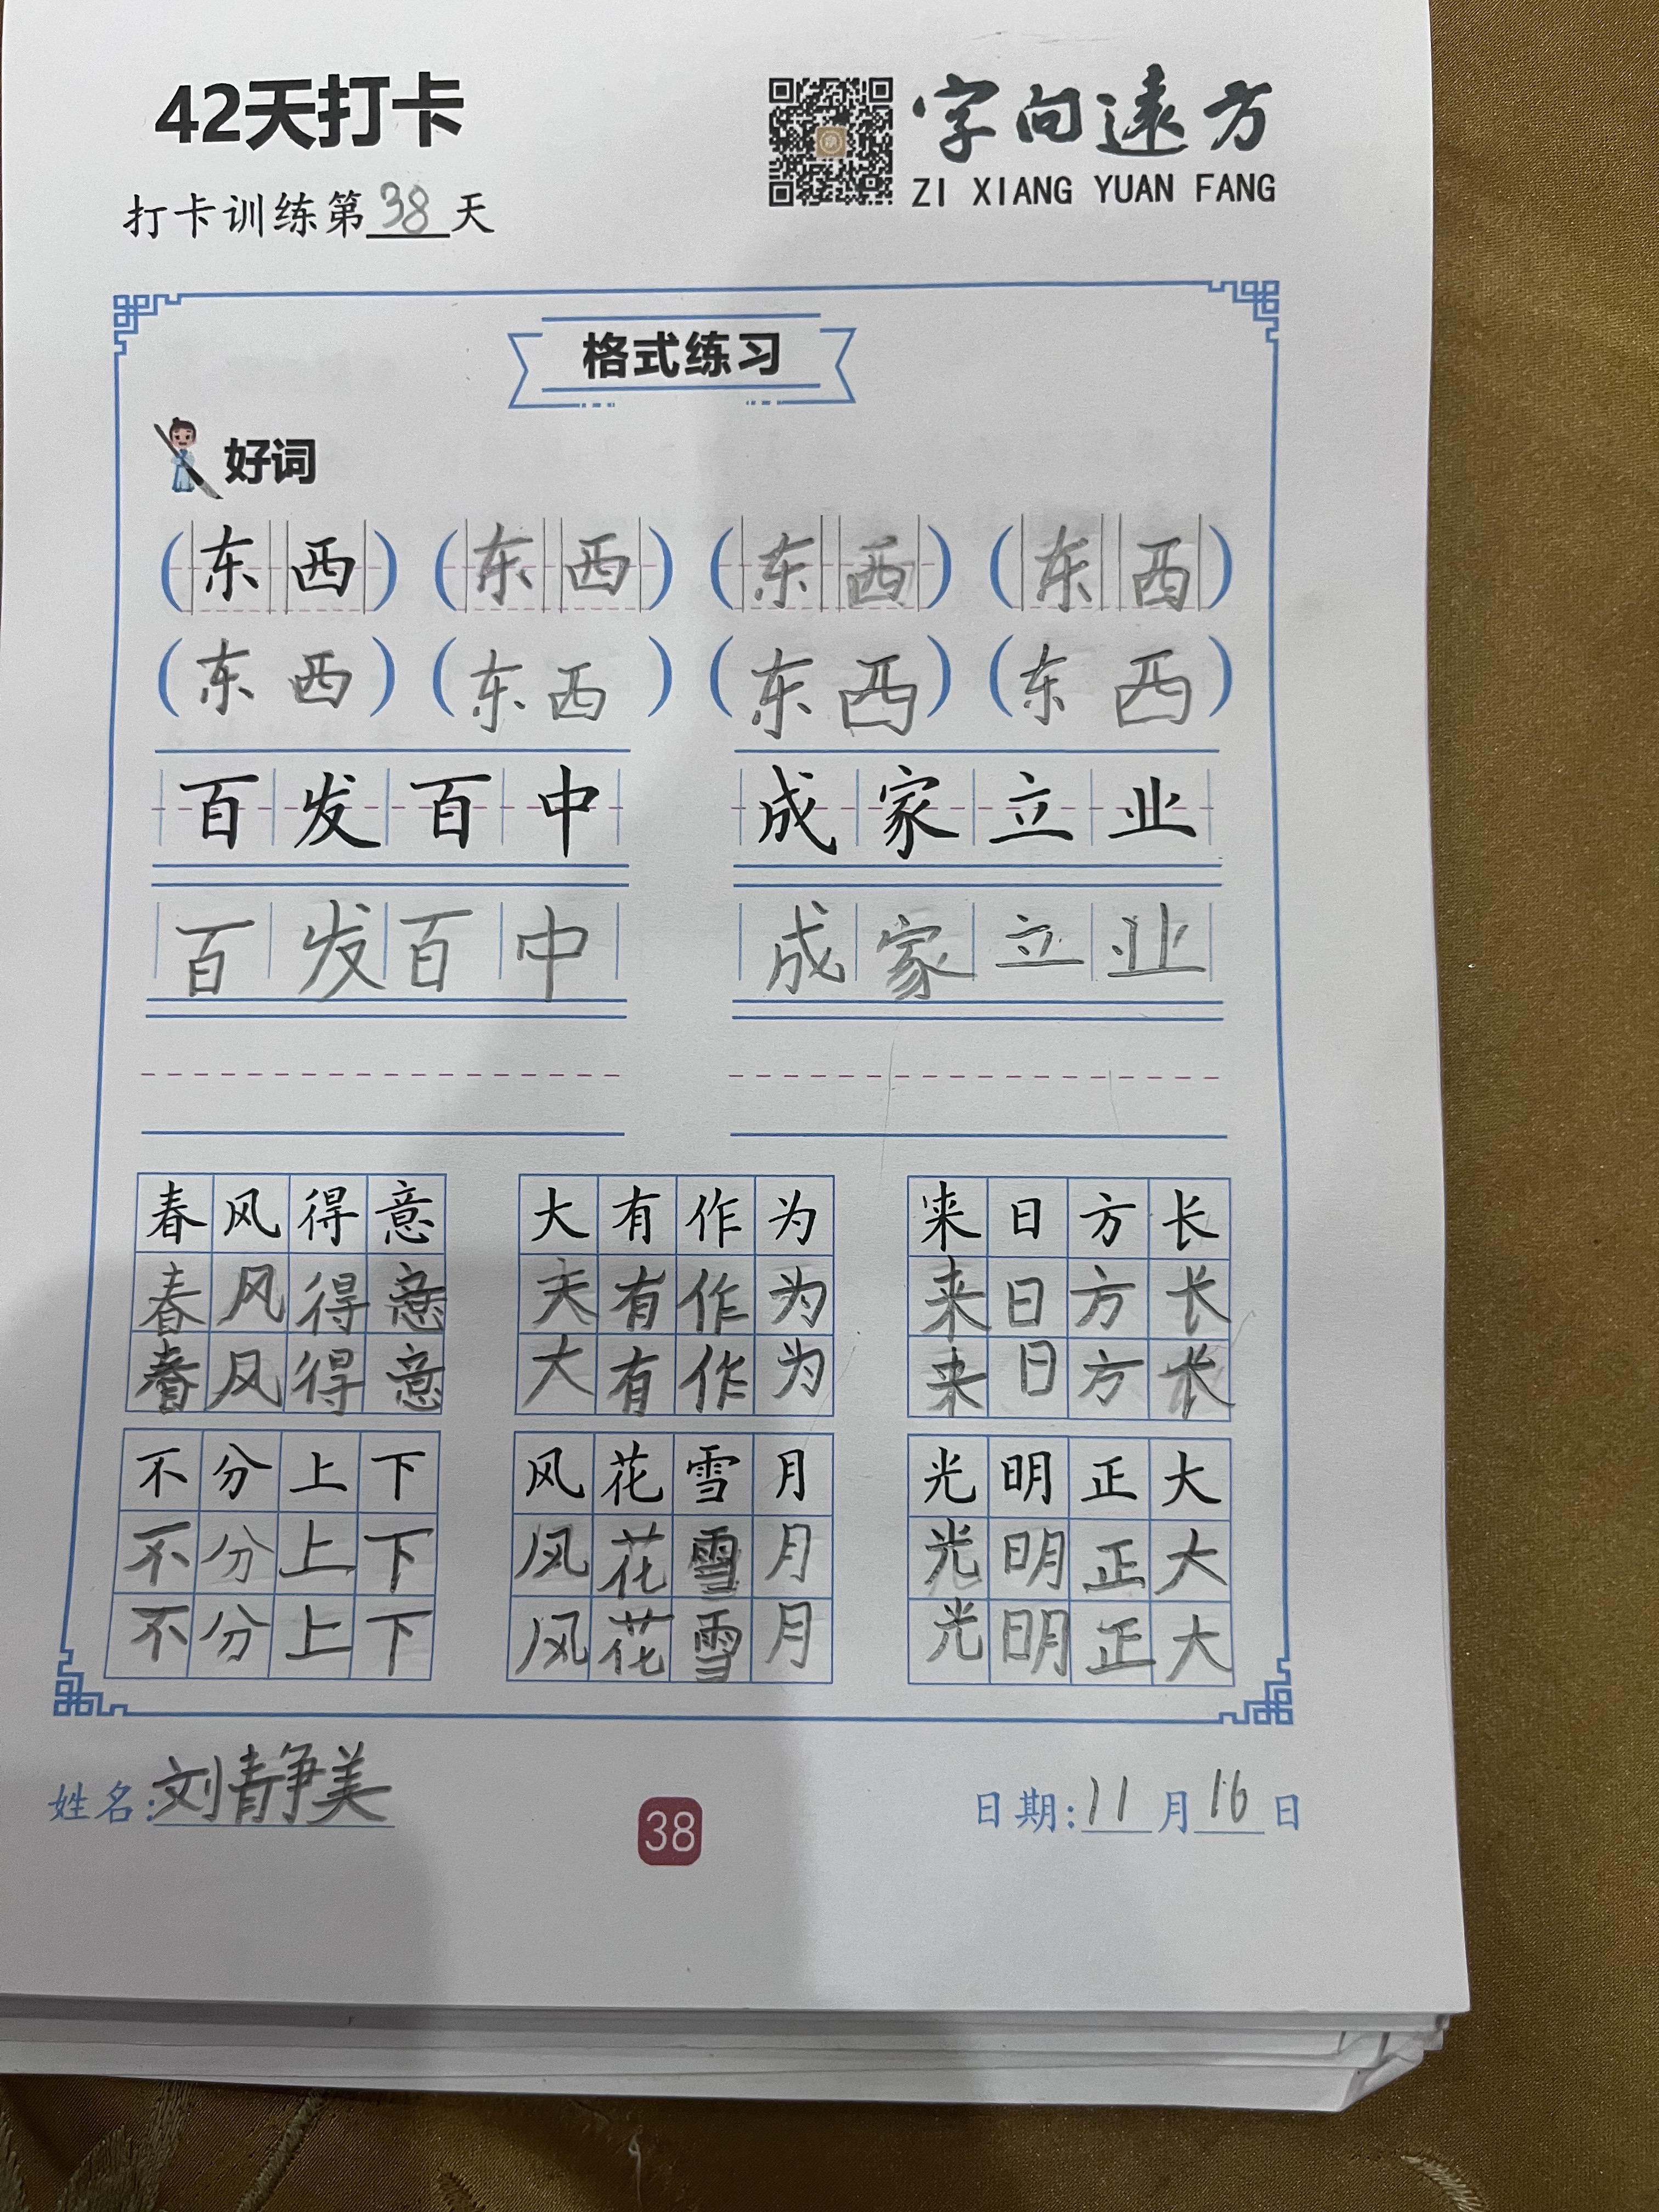 42天打卡
字向遠方
ZI XIANG YUAN FANG
打卡训练第38天
格式练习
好词
(东西) (东西) (东西) (东西)
(东西) (东西) (东西) (东西)
百发百中 成家立业
百发百中 成家立业
春风得意 大有作为 来日方长
春风得意 大有作为 来日方长
春风得意 大有作为 来日方长
不分上下 风花雪月 光明正大
不分上下 风花雪月 光明正大
不分上下 风花雪月 光明正大
姓名:刘静美
38
日期:11月16日